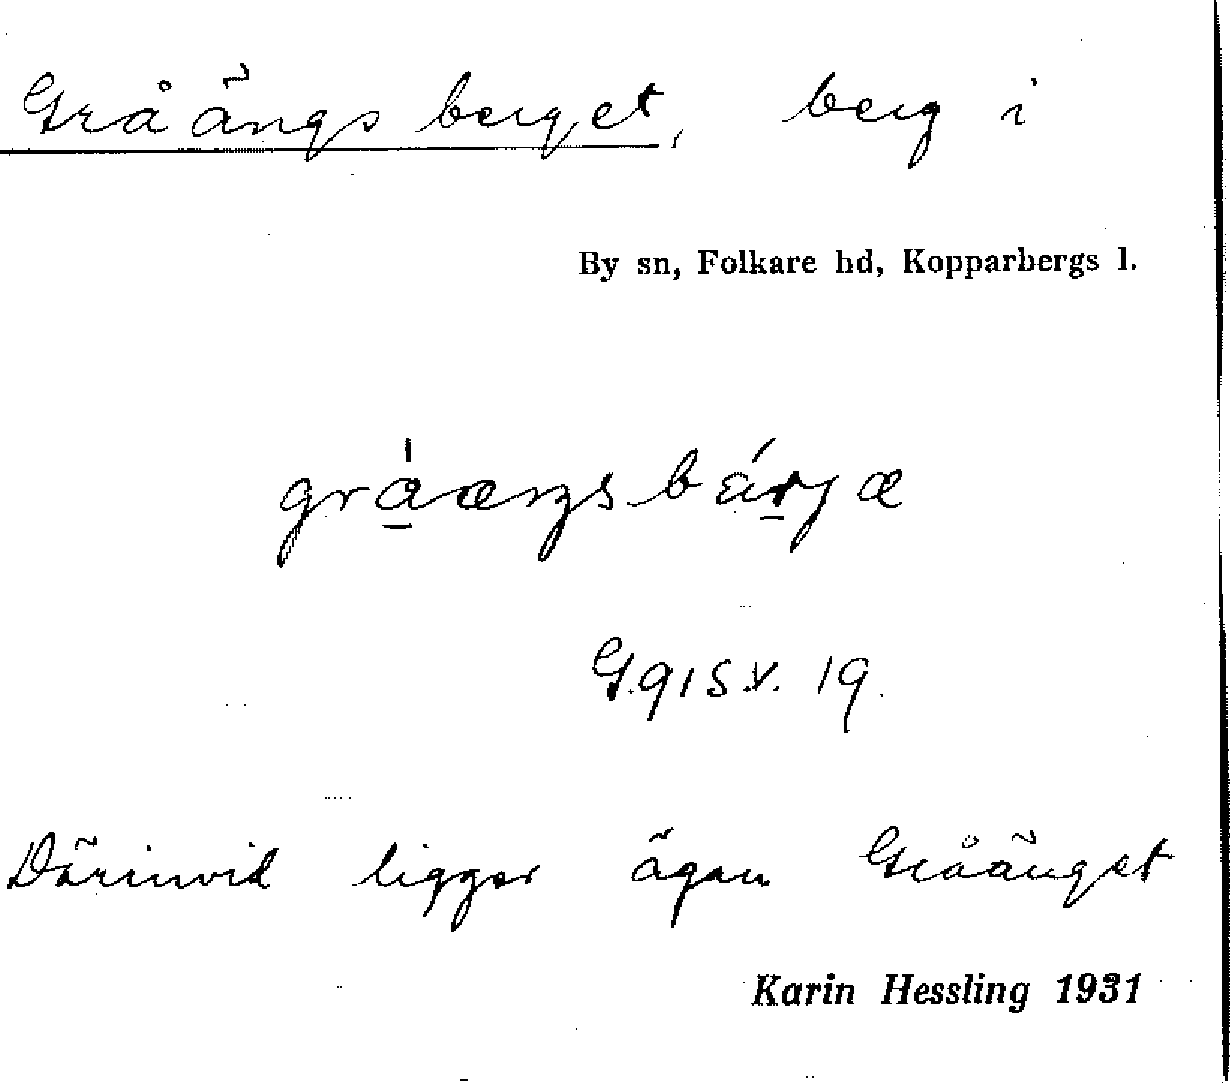 Gråängsberget, berg i
By sn, Folkare hd, Kopparbergs l.
G.915.v. 19.
Därinvid ligger ägan Gråänget
Karin Hessling 1931